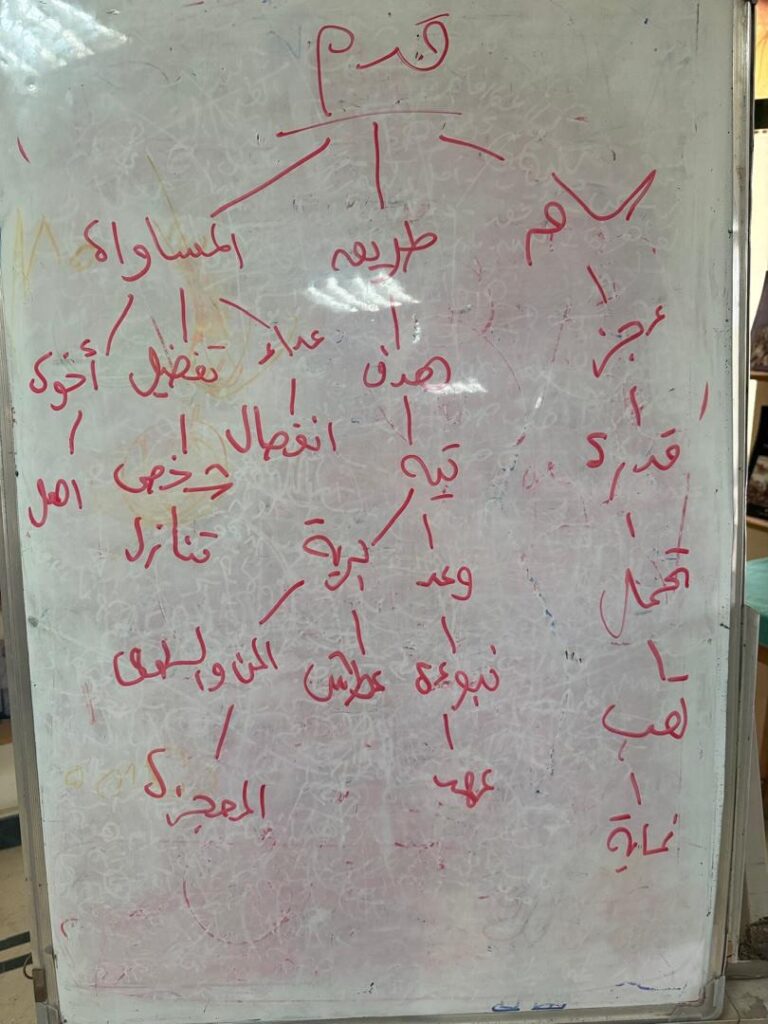 قدم
طريقه المساواة
عجز هدف عداء تفضيل أخوة
قدرة تيه انفصال شخص اهل
تحمل وعد برية تنازل
نبوءة عطش المن والسلوى
عهد المعجزة